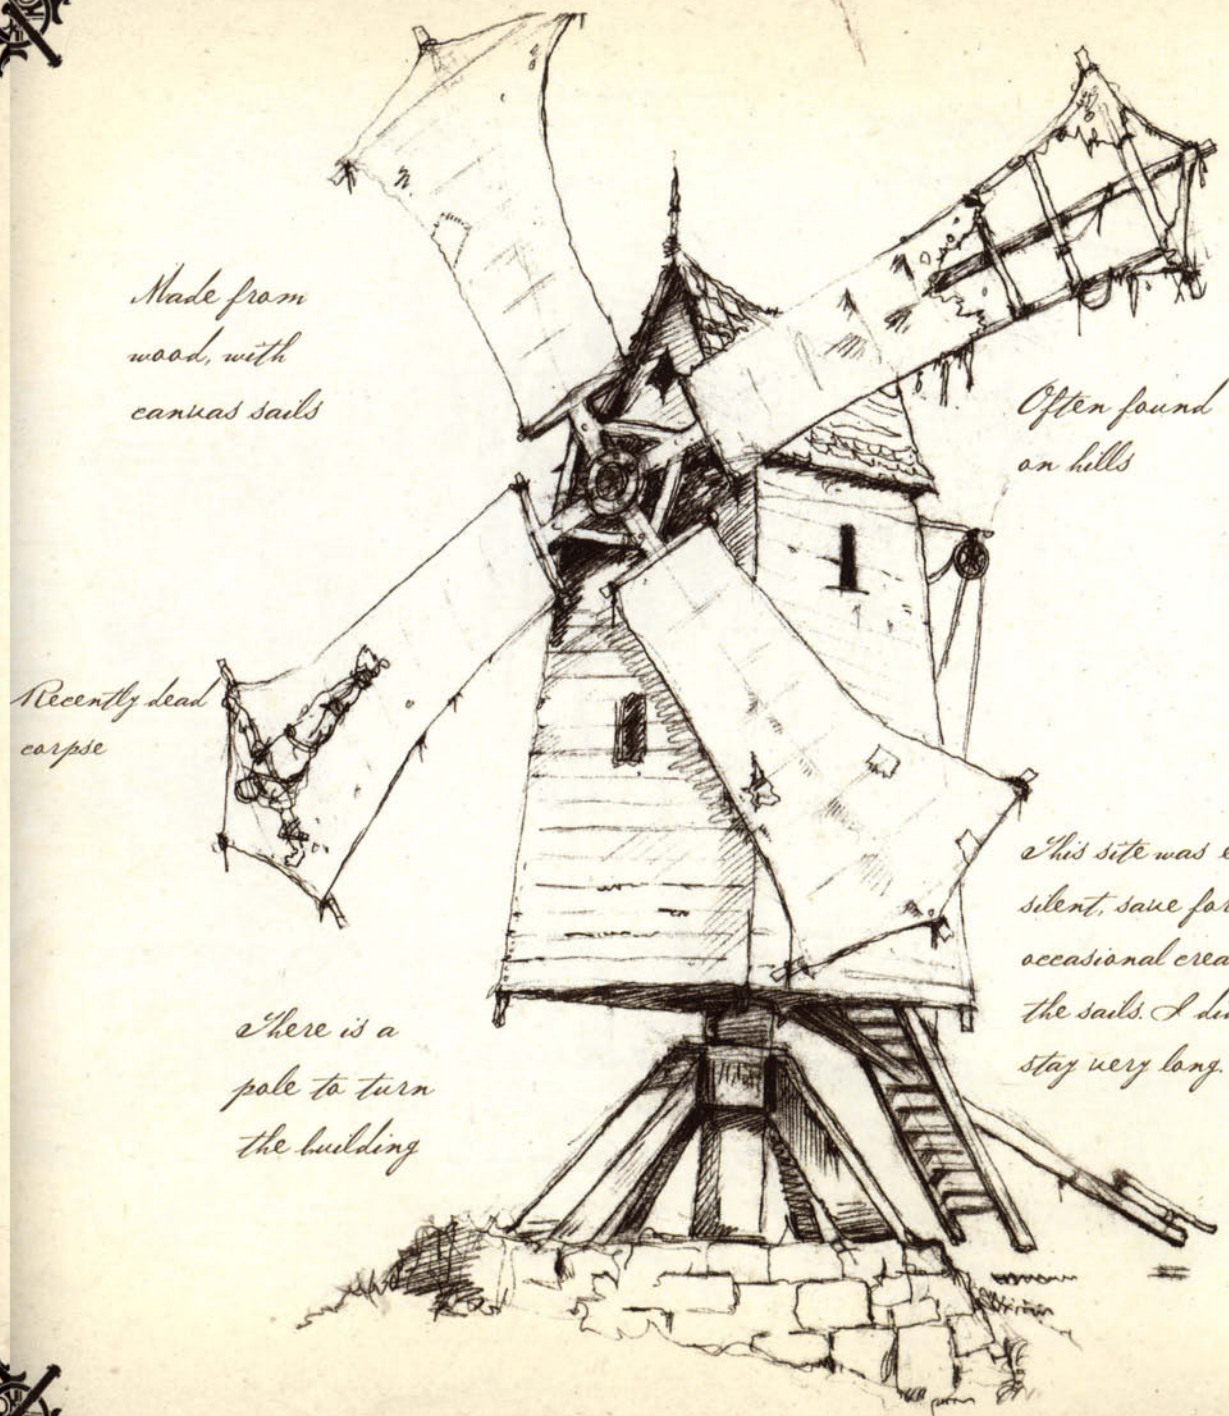 Made from
wood, with
canvas sails
Often found
on hills
Recently dead
corpse
This site was
silent, save for
occasional
the sails. I
stay very long.
There is a
pole to turn
the building